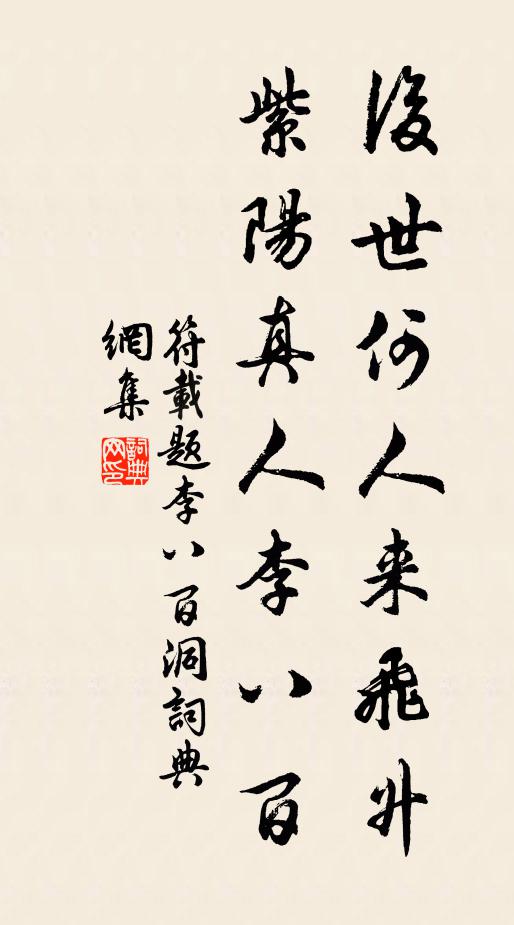 後世何人来飛升
紫陽真人李八百
符載题李八百洞詞典
網集
詞典網印